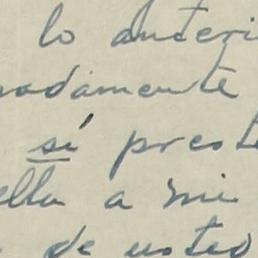 lo anteri
adamente
sí prest
ella a mi
de usted